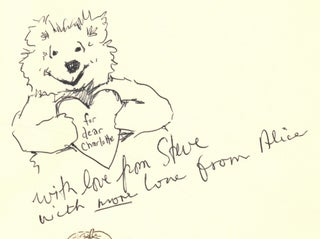 for
dear
Charlotte
with love from Steve
with more love from Alice